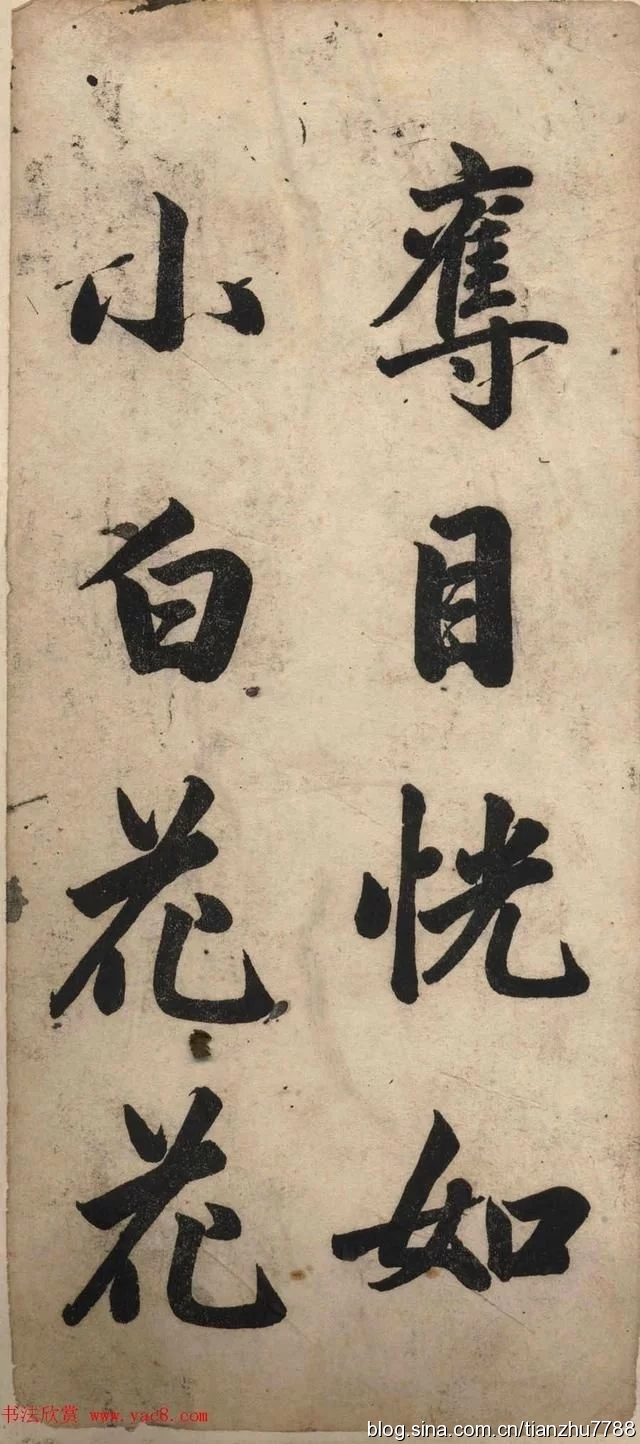 奪目恍如
小白花花
书法欣赏 www.yac8.com
blog.sina.com.cn/tianzhu7788